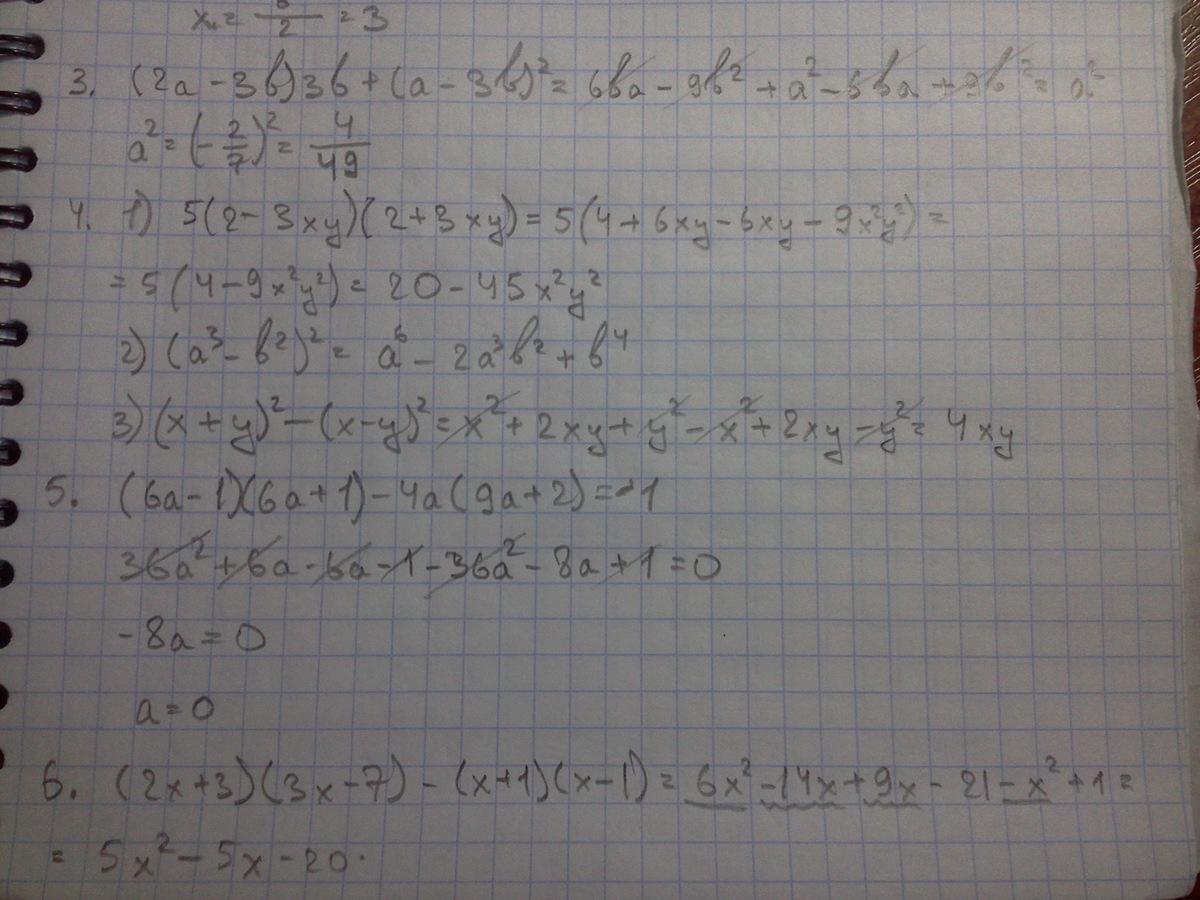 x₁ = 6/2 = 3
3. (2a - 3b)3b + (a - 3b)² = 6ba - 9b² + a² - 6ba + 9b² = a²
a² = (-2/7)² = 4/49
4. 1) 5(2 - 3xy)(2 + 3xy) = 5(4 + 6xy - 6xy - 9x²y²) =
= 5(4 - 9x²y²) = 20 - 45x²y²
2) (a³ - b²)² = a⁶ - 2a³b² + b⁴
3) (x + y)² - (x - y)² = x² + 2xy + y² - x² + 2xy - y² = 4xy
5. (6a - 1)(6a + 1) - 4a(9a + 2) = -1
36a² + 6a - 6a - 1 - 36a² - 8a + 1 = 0
-8a = 0
a = 0
6. (2x + 3)(3x - 7) - (x + 1)(x - 1) = 6x² - 14x + 9x - 21 - x² + 1 =
= 5x² - 5x - 20.